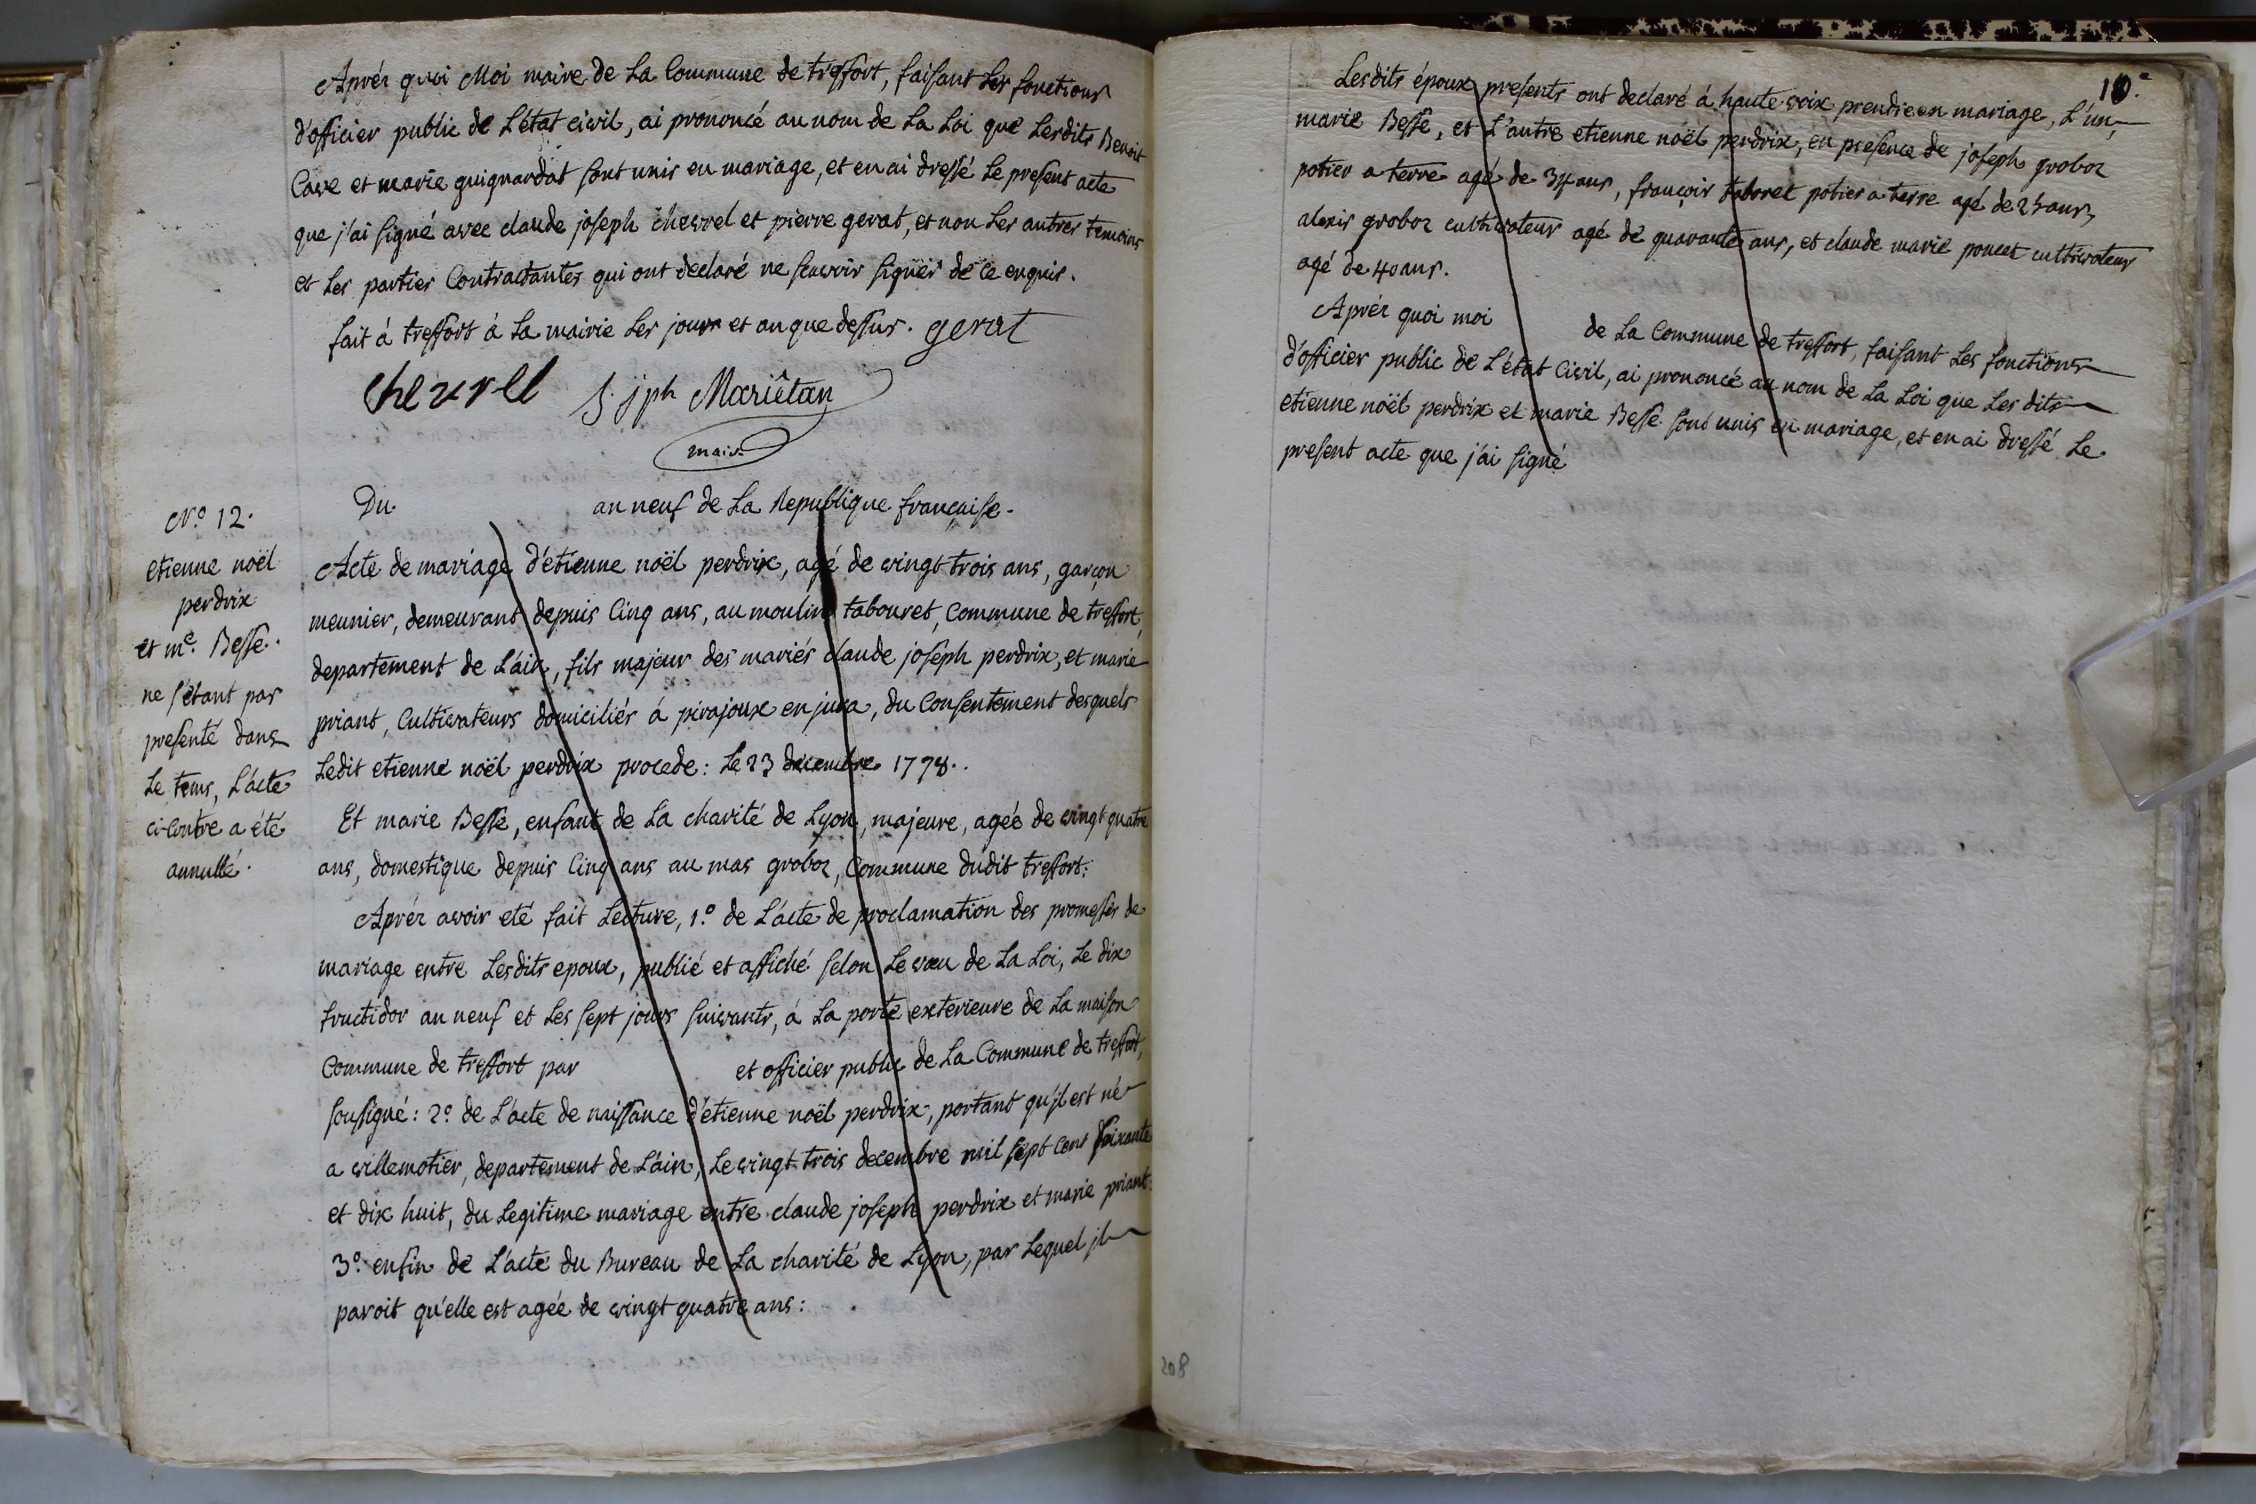 Aprés quoi Moi maire de La Commune de treffort, faisant Les fonctions
d'officier public de L'état civil, ai prononcé au nom de La Loi que Lesdits Benoit
Cave et marie guignardat sont unis en mariage, et en ai dressé Le present acte
que j'ai signé avec claude joseph chevrel et pierre gerat, et non Les autres temoins
et Les parties Contractantes qui ont declaré ne scavoir signer de ce enquis.
fait á treffort á La mairie Les jours et an que dessus. gerat
chevrel J. jph Mariêtan
maire
N.º 12.
etienne noël
perdrix
et m.e Besse.
ne s'étant pas
presenté dans
Le tems, L'acte
ci-Contre a été
annullé.
Du. an neuf de La Republique française.
Acte de mariage d'étienne noël perdrix, agé de vingt-trois ans, garçon
meunier, demeurant depuis Cinq ans, au moulin tabouret, Commune de treffort,
departement de L'ain, fils majeur des mariés claude joseph perdrix, et marie
priant, Cultivateurs domiciliés á pirajoux en jura, du Consentement desquels
Ledit etienne noël perdrix procede: Le 23 decembre 1778.
Et marie Besse, enfant de La charité de Lyon, majeure, agée de vingt quatre
ans, domestique depuis Cinq ans au mas groboz, Commune dudit treffort:
Aprés avoir eté fait Lecture, 1.º de L'acte de proclamation des promesses de
mariage entre Lesdits epoux, publié et affiché selon Le vœu de La Loi, Le dix
fructidor an neuf et Les sept jours suivants, á La porte exterieure de La maison
Commune de treffort par et officier public de La Commune de treffort,
soussigné: 2.º de L'acte de naissance d'étienne noël perdrix, portant qu'jl est né
a villemotier, departement de L'ain, Le vingt-trois decembre mil sept cent soixante
et dix huit, du Legitime mariage entre claude joseph perdrix et marie priant.
3.º enfin de L'acte du Bureau de La charité de Lyon, par Lequel jl
paroit qu'elle est agée de vingt quatre ans:
208
10.e
Lesdits époux presents ont declaré á haute voix prendre en mariage, L'un,
marie Besse, et L'autre etienne noël perdrix, en presence de joseph groboz
potier a terre agé de 34 ans, françois taboret potier a terre agé de 25 ans,
alexis groboz cultivateur agé de quarante ans, et claude marie poncet cultivateur
agé de 40 ans.
Aprés quoi moi de La Commune de treffort, faisant Les fonctions
d'officier public de L'état Civil, ai prononcé au nom de La Loi que Les dits
etienne noël perdrix et marie Besse sont unis en mariage, et en ai dressé Le
present acte que j'ai signé